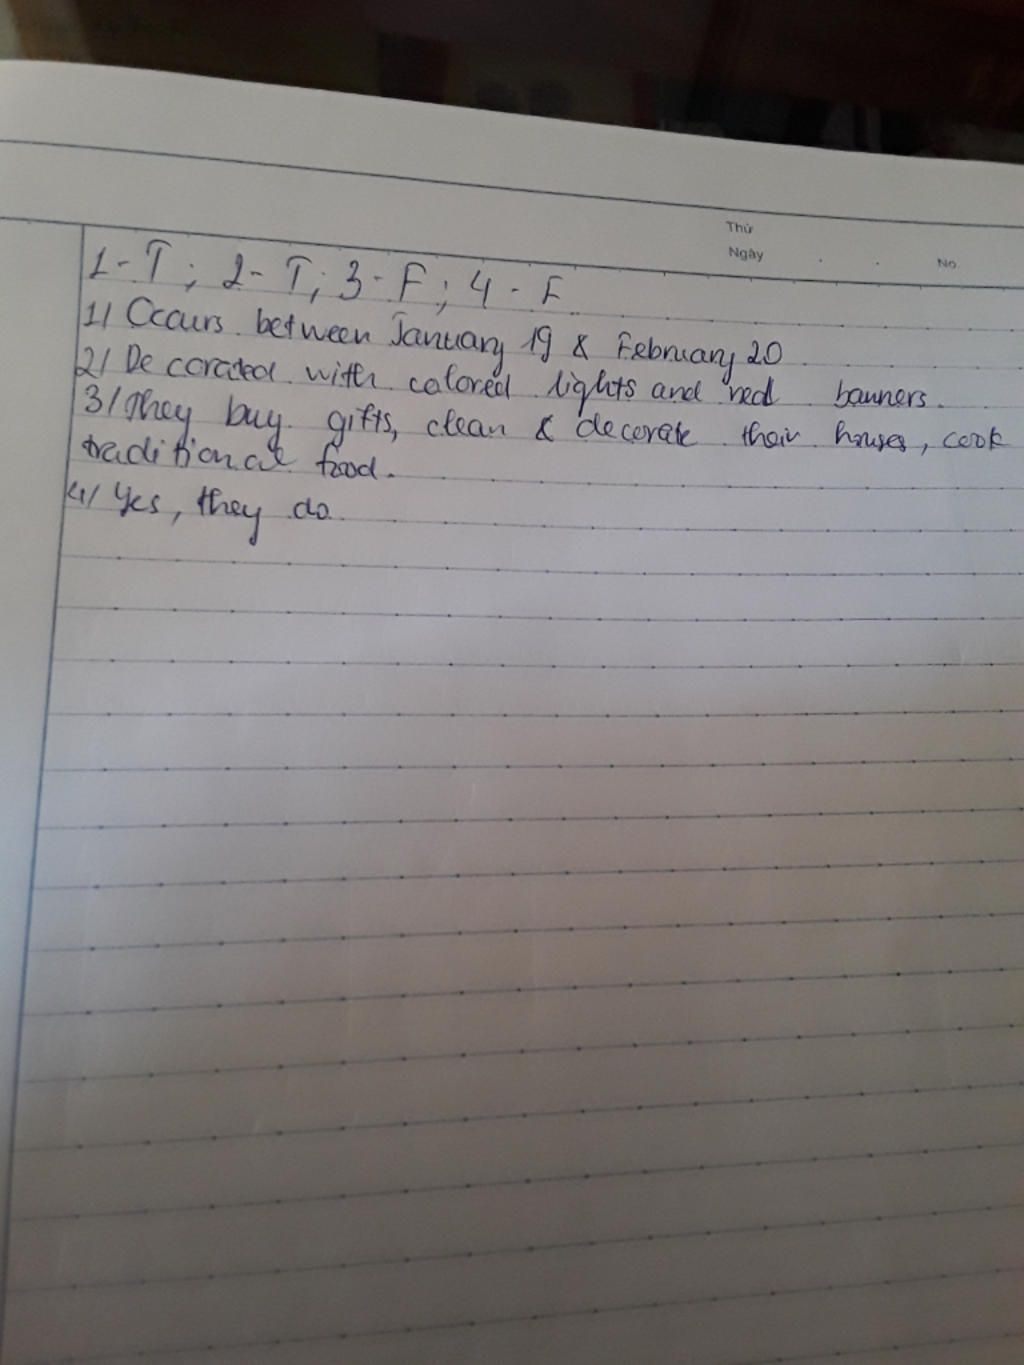 Thứ
Ngày
No.
1-T; 2-T; 3-F; 4-F
1/ Occurs between January 19 & February 20
2/ Decorated with colored lights and red banners.
3/ They buy gifts, clean & decorate their houses, cook
traditional food.
4/ Yes, they do.